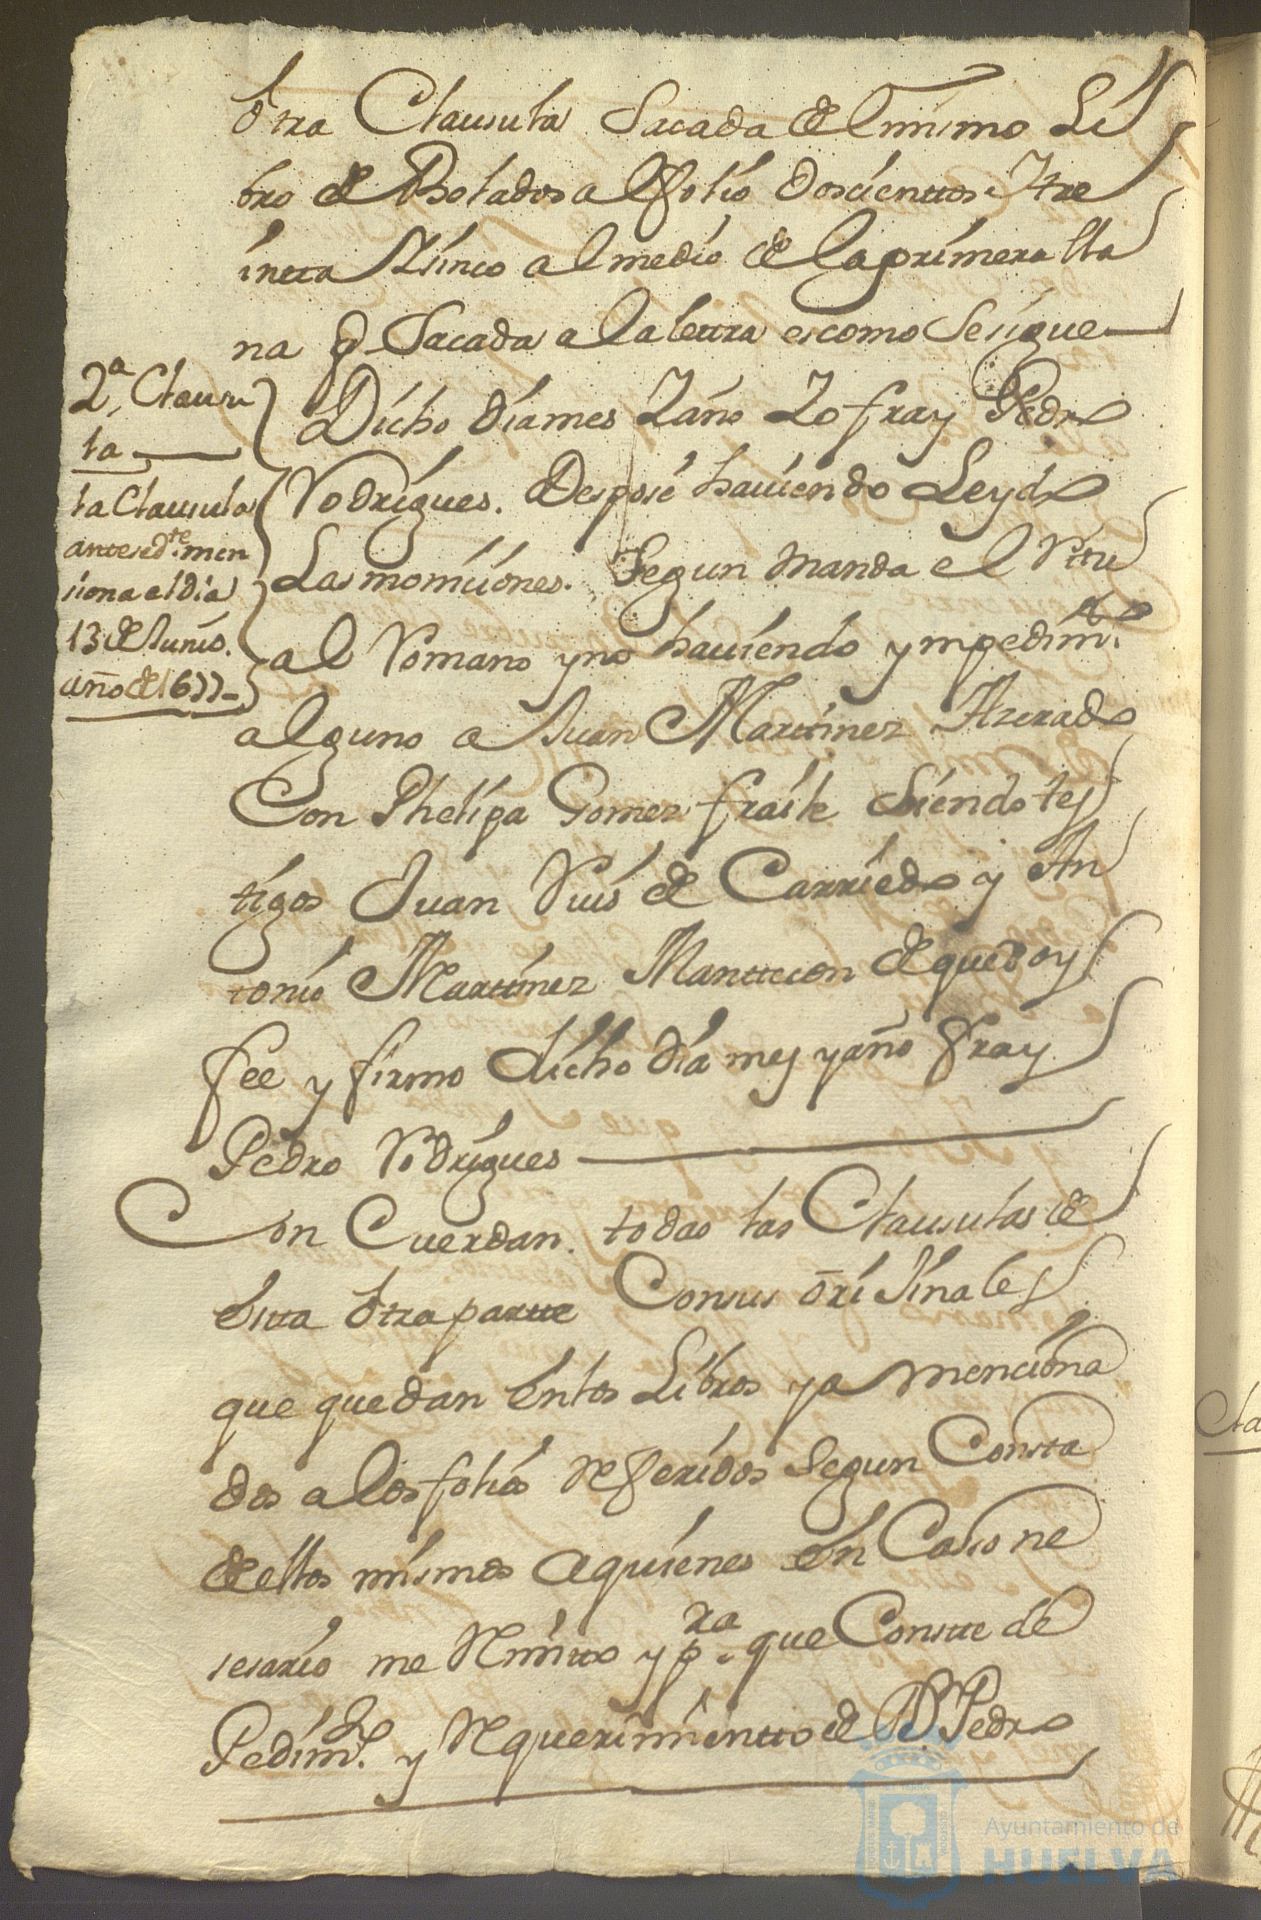 otra Clausula Sacada del mismo Li
bro de Botados al folio Doscienttos Ytre
intta Zinco al medio de la primera lla
na q Sacada a la letra es como Sesigue
2ª Clausu
la
Dicho dia mes Y año Yo fray Pedro
Rodrigues. Desposé haviendo Leydo
Las moniciones. Segun Manda el Ritu
al Romano y no haviendo ympedimto
alguno a Juan Martinez
Con Phelipa Gomez fraile Siendo tes
tigos Juan Ruis de Carriedo y An
tonio Martinez de que doy
fee y firmo dicho dia mes y año fray
Pedro Rodrigues
la Clausula
antesedte men
siona el dia
13 de Junio.
año de 1677
Con Cuerdan todas las Clausulas de
esta otra parte Consus orijinales
que quedan en los Libros ya menciona
dos a los folios Referidos Segun Consta
de ellos mismos a quienes en Caso ne
sesario me Rimito y pra que Conste de
Pedimto y Requerimientto de Dn Pedro
Ayuntamiento de
HUELVA